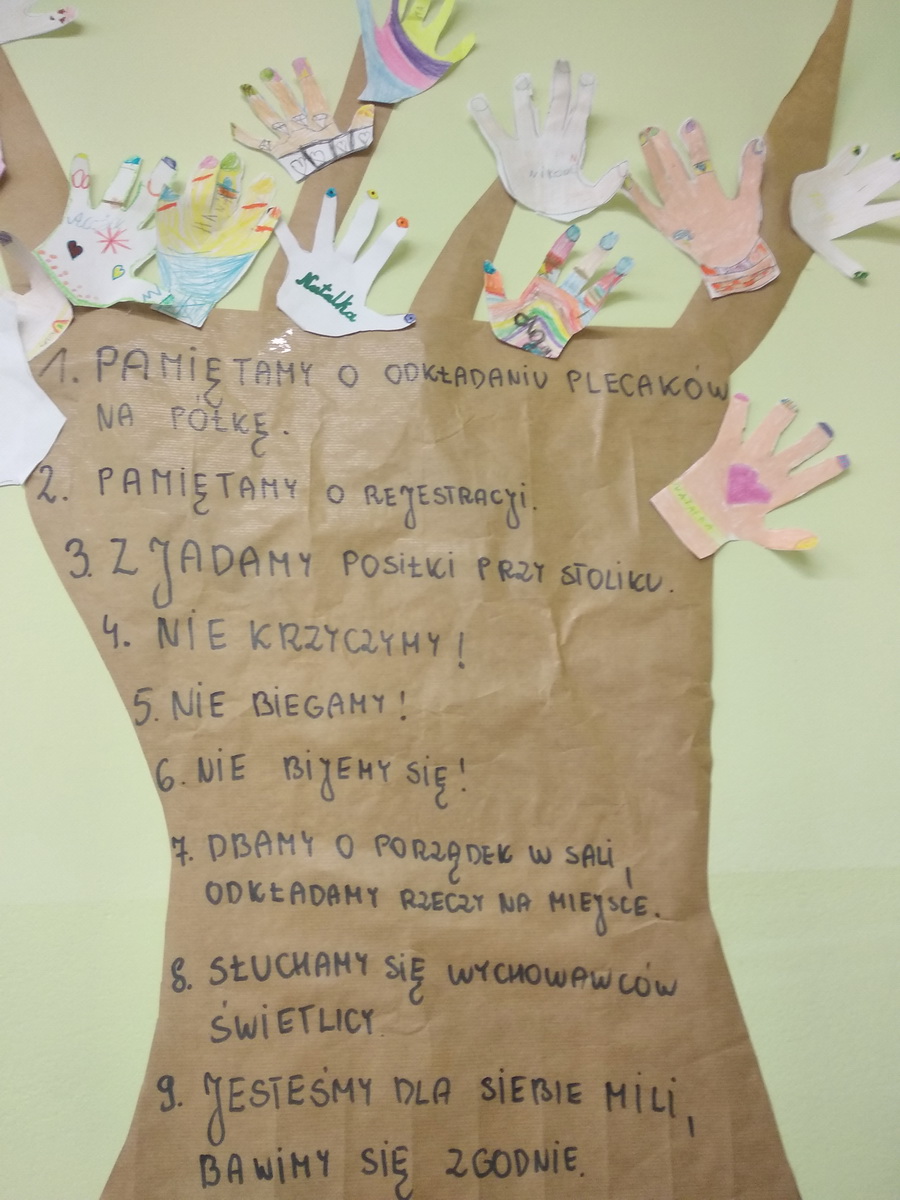 Natalka
1. PAMIĘTAMY O ODKŁADANIU PLECAKÓW
NA PÓŁKĘ.
2. PAMIĘTAMY O REJESTRACJI.
3. ZJADAMY POSIŁKI PRZY STOLIKU.
4. NIE KRZYCZYMY!
5. NIE BIEGAMY!
6. NIE BIJEMY SIĘ!
7. DBAMY O PORZĄDEK W SALI,
ODKŁADAMY RZECZY NA MIEJSCE.
8. SŁUCHAMY SIĘ WYCHOWAWCÓW
ŚWIETLICY.
9. JESTEŚMY DLA SIEBIE MILI,
BAWIMY SIĘ ZGODNIE.